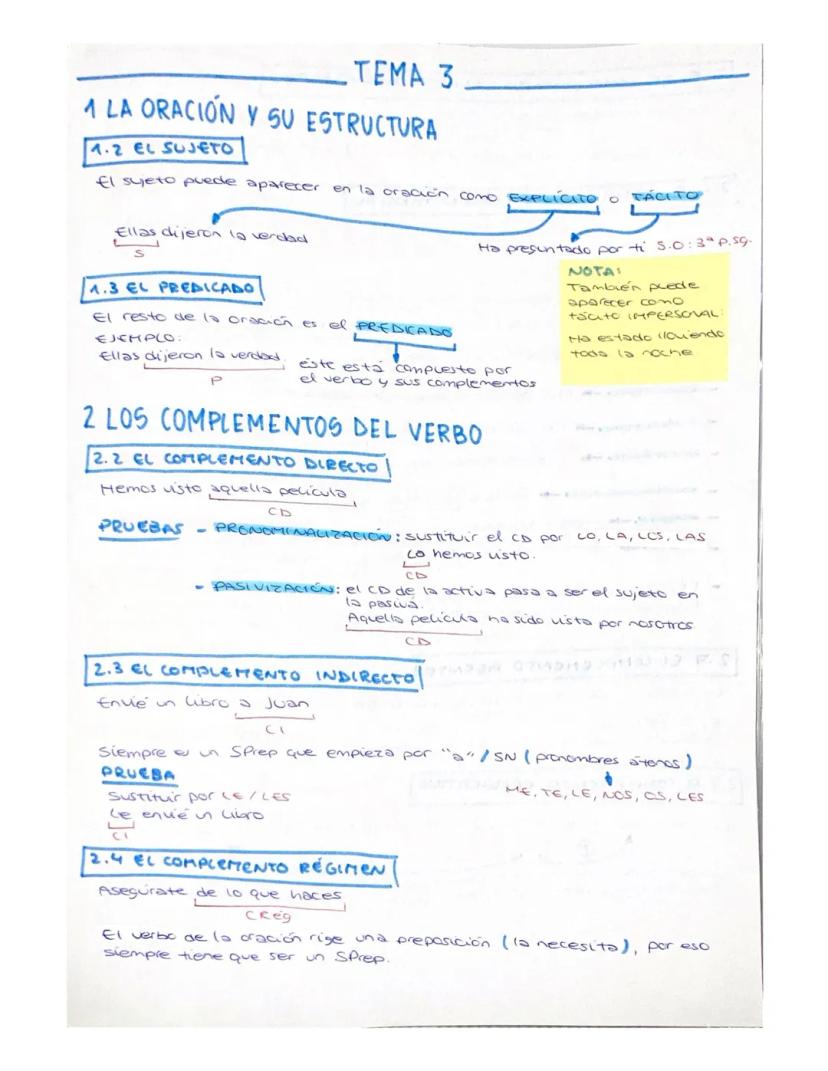 TEMA 3
1 LA ORACIÓN Y SU ESTRUCTURA
1.2 EL SUJETO
El sujeto puede aparecer en la oración como EXPLÍCITO o TÁCITO
Ellas dijeron la verdad
S
Ha preguntado por ti S.O: 3ª p.sg.
NOTA:
También puede
aparecer como
tácito IMPERSONAL:
Ha estado lloviendo
toda la noche
1.3 EL PREDICADO
El resto de la oración es el PREDICADO
EJEMPLO:
Ellas dijeron la verdad.
P
éste está compuesto por
el verbo y sus complementos
2 LOS COMPLEMENTOS DEL VERBO
2.2 EL COMPLEMENTO DIRECTO
Hemos visto aquella película
CD
PRUEBAS - PRONOMINALIZACIÓN: sustituir el CD por LO, LA, LOS, LAS
Lo hemos visto.
CD
- PASIVIZACIÓN: el CD de la activa pasa a ser el sujeto en
la pasiva.
Aquella película ha sido vista por nosotros
CD
2.3 EL COMPLEMENTO INDIRECTO
Envié un libro a Juan
CI
Siempre es un SPrep que empieza por "a" / SN (pronombres átonos)
ME, TE, LE, NOS, OS, LES
PRUEBA
Sustituir por LE / LES
Le envié un libro
CI
2.4 EL COMPLEMENTO RÉGIMEN
Asegúrate de lo que haces
CRég
El verbo de la oración rige una preposición (la necesita), por eso
siempre tiene que ser un SPrep.